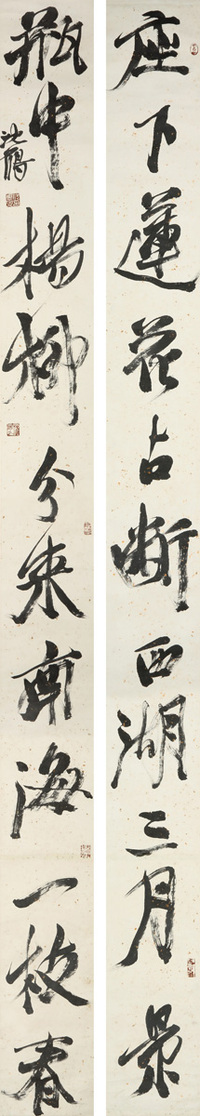 座下蓮花占斷西湖三月景
瓶中楊柳分來南海一枝春
沈鵬